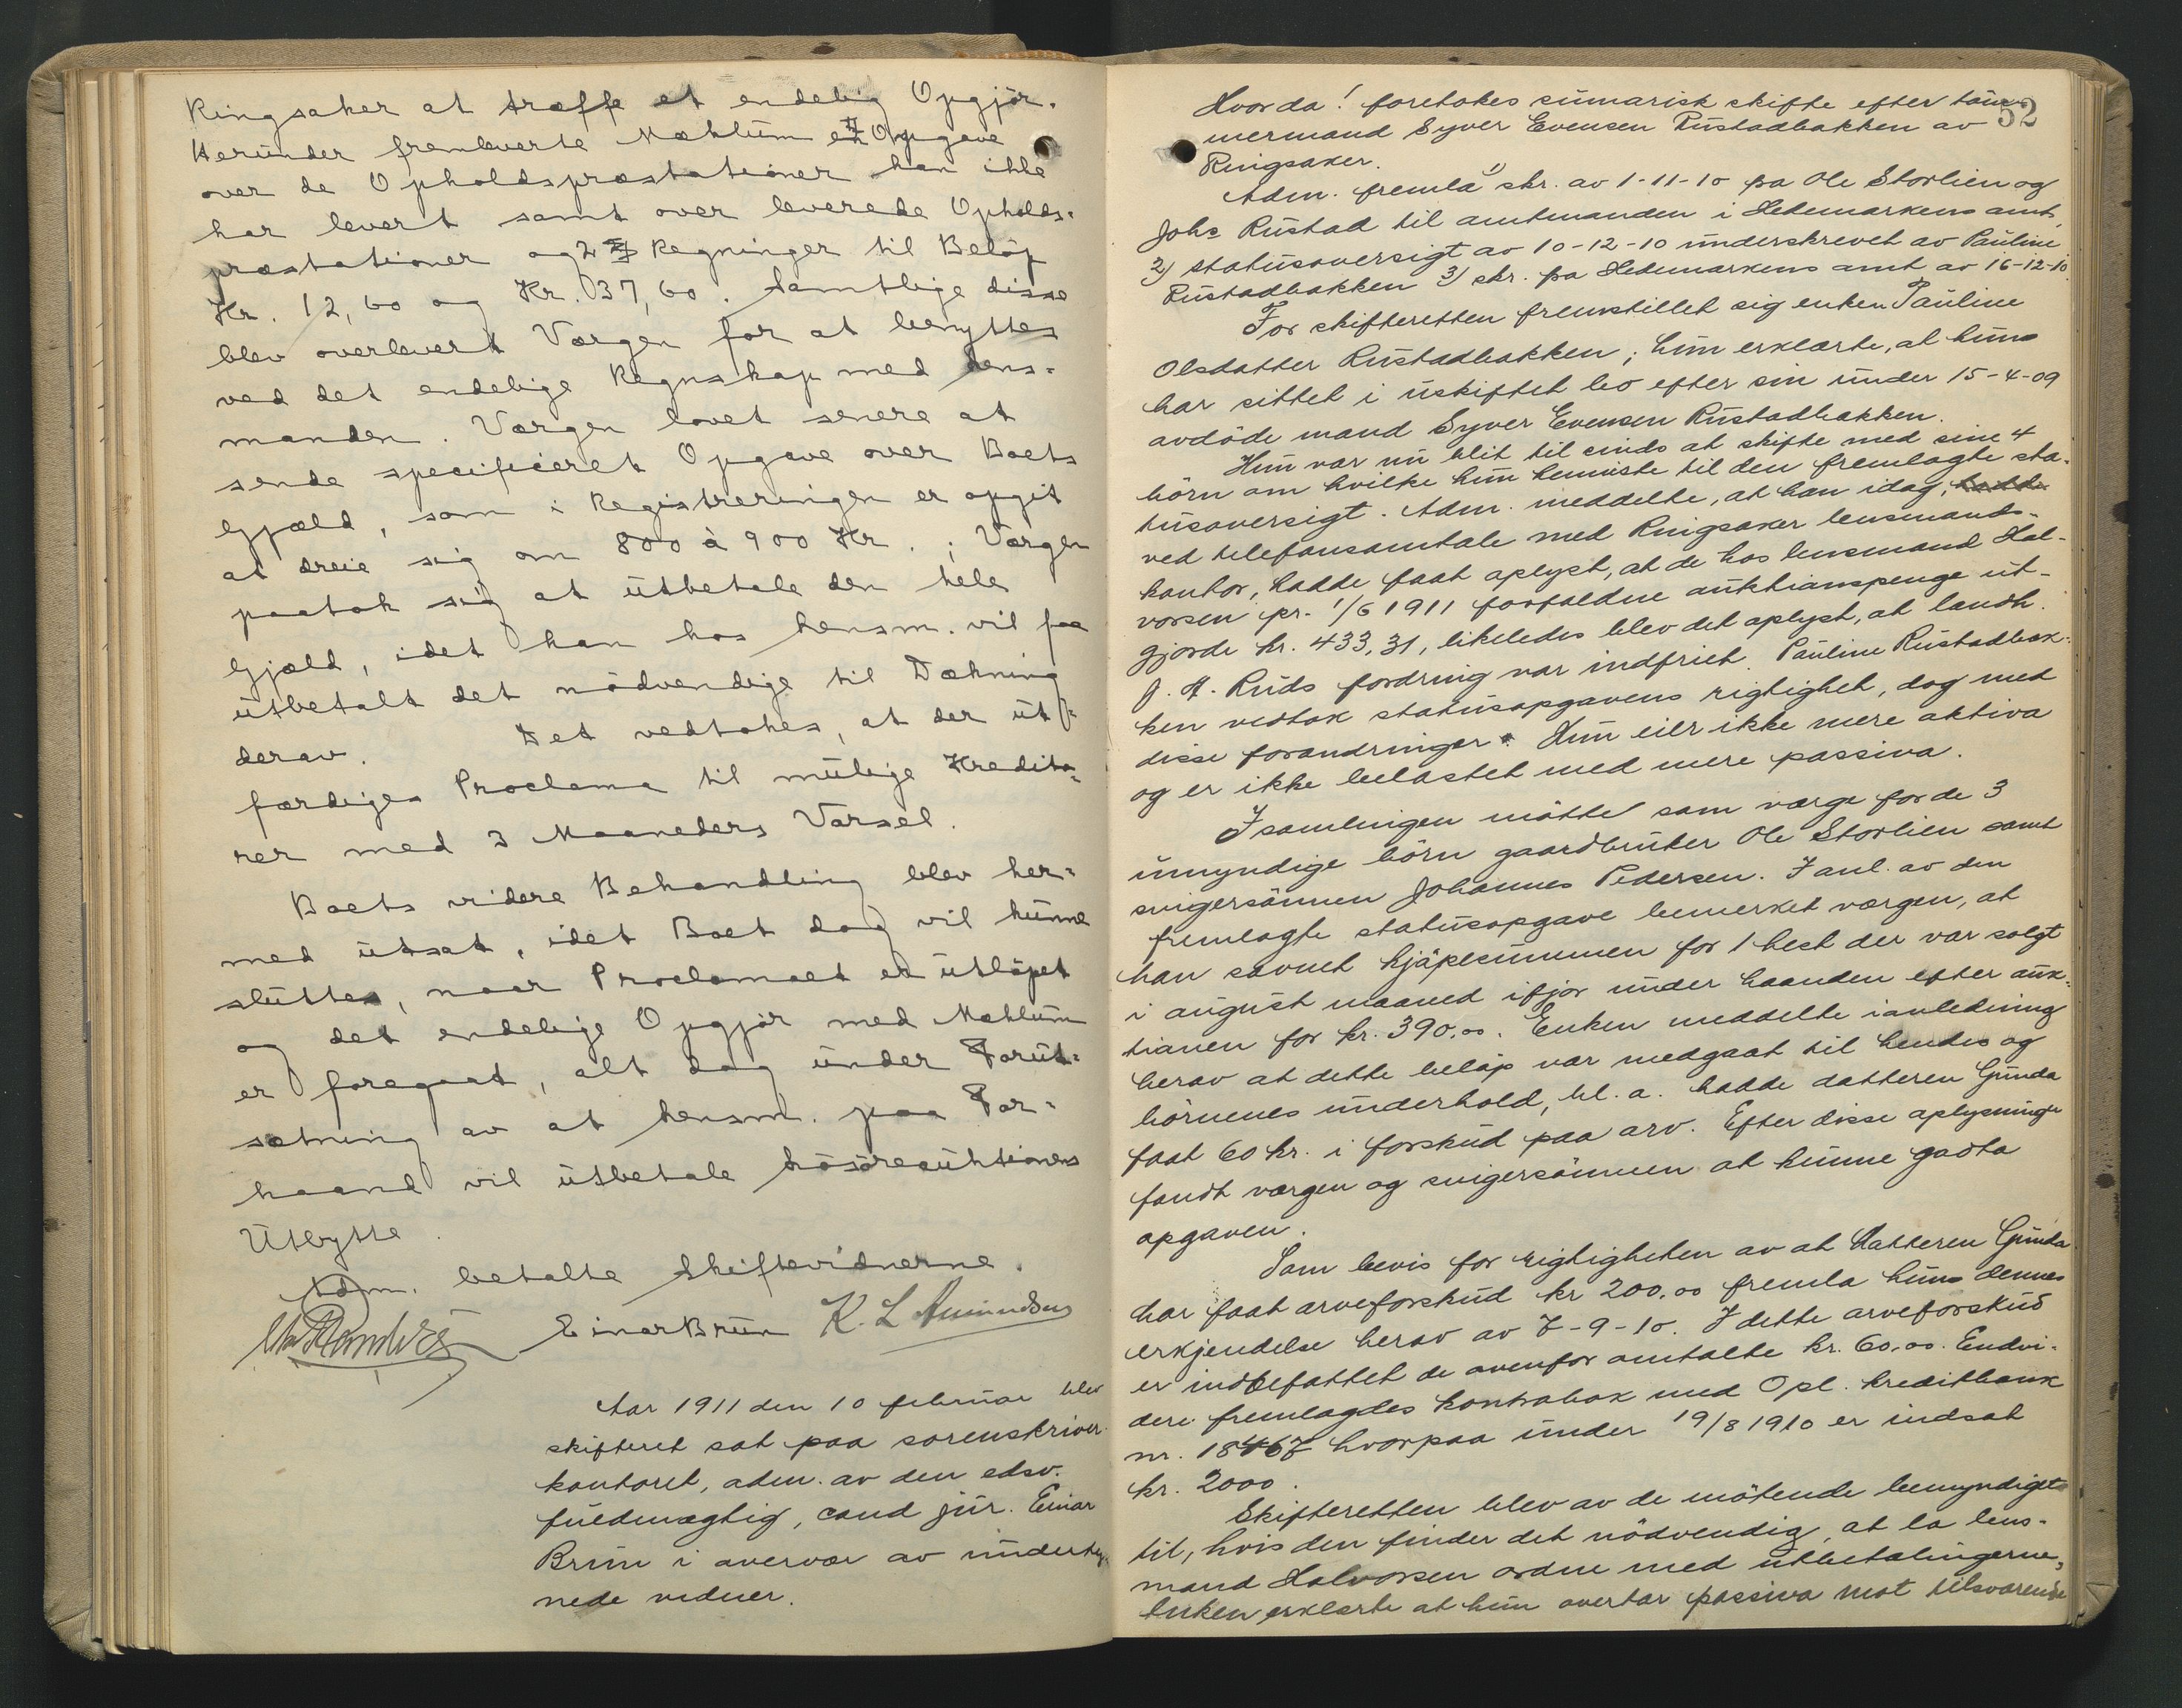 Ringsaker at træffe et endelig Opgjör.
Herunder fremleverte Mæhlum en Opgave
over de Opholdspræstationer han ikke
har levert samt over leverede Opholds=
præstationer og 2 Regninger til Belöp
Kr. 12,60 og Kr. 37,60. Samtlige disse
blev overlevert Værgen for at benyttes
ved det endelige Regnskap med Lens=
manden. Værgen lovet senere at
sende specificeret Opgave over Boets
Gjæld, som i Registreringen er opgit
at dreie sig om 800 à 900 Kr.; Værgen
paatok sig at utbetale den hele
Gjæld, idet han hos Lensm. vil faa
utbetalt det nödvendige til Dækning
derav. Det vedtokes, at der ut=
færdiges Proclama til mulige Kredito=
rer med 3 Maaneders Varsel.
Boets videre Behandling blev her=
med utsat, idet Boet dog vil kunne
sluttes, naar Proclamaet er utlöpet
og det endelige Opgjör med Mæhlum
er foregaat, alt dog under Forut=
sætning av at Lensm. paa For=
haand vil utbetale Lösöreauktionens
Utbytte.
Adm. betalte Skiftevidnerne.
Einar Brun K. L. Amundsen
Aar 1911 den 10 februar blev
skifteret sat paa sorenskriver-
kontoret, adm. av den edsv.
fuldmægtig, cand jur. Einar
Brun i overvær av underteg-
nede vidner.
52
Hvorda! foretokes sumarisk skifte efter töm-
mermand Syver Evensen Rustadbakken av
Ringsaker.
Adm. fremla 1) skr. av 1-11-10 fra Ole Storlien og
Johs Rustad til amtmanden i Hedemarkens amt,
2) statusoversigt av 10-12-10 underskrevet av Pauline
Rustadbakken 3) skr. fra Hedemarkens amt av 16-12-10.
For skifteretten fremstillet sig enken Pauline
Olsdatter Rustadbakken; hun erklærte, at hun
har sittet i uskiftet bo efter sin under 15-4-09
avdöde mand Syver Evensen Rustadbakken.
Hun var nu blit til sinds at skifte med sine 4
börn om hvilke hun henviste til den fremlagte sta-
tusoversigt. Adm. meddelte, at han idag, hadde
ved telefonsamtale med Ringsaker lensmands-
kontor, hadde faat oplyst, at de hos lensmand Hal-
vorsen pr. 1/6 1911 forfaldne auktionspenge ut-
gjorde kr. 433,31, likeledes blev det oplyst, at landh.
J. A. Ruds fordring var indfriet. Pauline Rustadbak-
ken vedtok statusopgavens rigtighet, dog med
disse forandringer. Hun eier ikke mere aktiva
og er ikke belastet med mere passiva.
I samlingen mötte som værge for de 3
umyndige börn gaardbruker Ole Storlien samt
svigersönnen Johannes Pedersen. I anl. av den
fremlagte statusopgave bemerket værgen, at
han savnet kjöpesummen for 1 hest der var solgt
i august maaned ifjor under haanden efter auk-
tionen for kr. 390.00. Enken meddelte i anledning
herav at dette belöp var medgaat til hendes og
börnenes underhold, bl. a. hadde datteren Gunda
faat 60 kr. i forskud paa arv. Efter disse oplysninger
fandt værgen og svigersönnen at kunne godta
opgaven.
Som bevis for rigtigheten av at datteren Gunda
har faat arveforskud kr 200.00 fremla hun dennes
erkjendelse herav av 7-9-10. I dette arveforskud
er indbefattet de ovenfor omtalte kr. 60.00. Endvi-
dere fremlagdes kontrabok med Opl. kreditbank
nr. 18467 hvorpaa under 19/8 1910 er indsat
kr. 2000.
Skifteretten blev av de mötende bemyndiget
til, hvis den finder det nödvendig, at la lens-
mand Halvorsen ordne med utbetalingerne,
Enken erklærte at hun overtar passiva mot tilsvarende